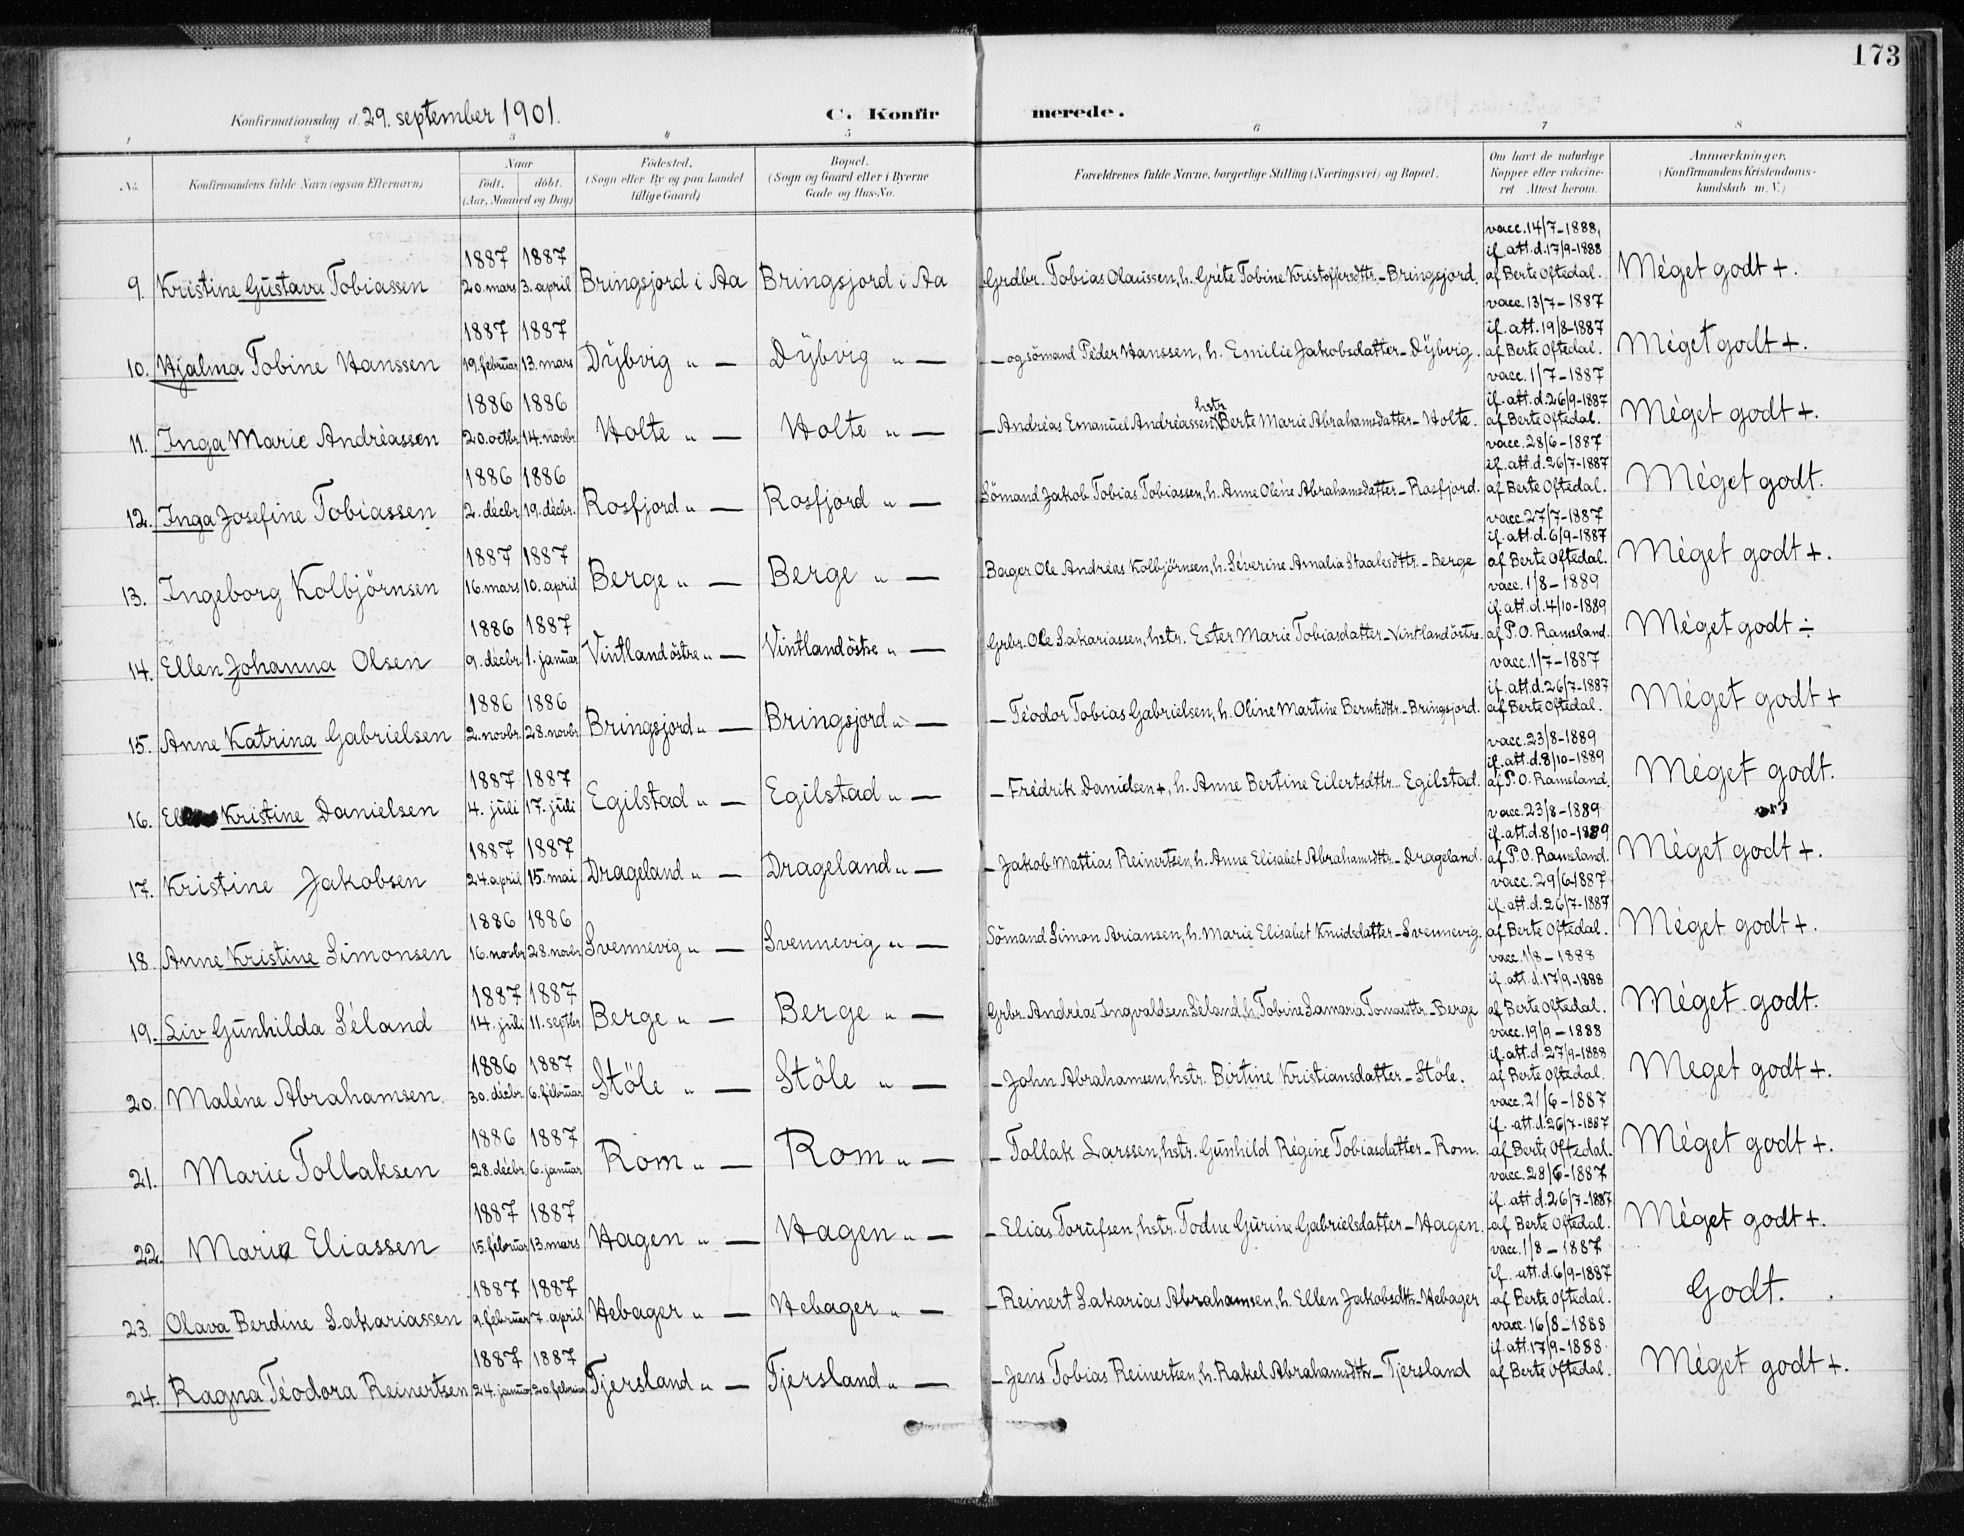 173
Konfirmationsdag d. 29. september 1901.
C. Konfirmerede.
1 2 3 4 5 6 7 8
No. Konfirmandens fulde Navn (ogsaa Efternavn) Naar født, døbt. (Aar, Maaned og Dag) Fødested. (Sogn eller By og paa Landet tillige Gaard) Bopæl. (Sogn og Gaard eller i Byerne Gade og Hus-No. Forældrenes fulde Navne, borgerlige Stilling (Næringsvei) og Bopæl. Om havt de naturlige Kopper eller vakcineret. Attest herom. Anmærkninger. (Konfirmandens Kristendomskundskab m. V.)
9. Kristine Gustava Tobiassen 1887 20. mars 1887 3. april Bringsjord i Aa Bringsjord i Aa Grdbr. Tobias Olaussen, h. Gréte Tobine Kristoffersdttr. - Bringsjord. vacc. 14/7-1888, if. att. d. 17/9-1888 af Berte Oftedal. Méget godt +.
10. Hjalma Tobine Hanssen 1887 19. februar 1887 13. mars Dÿbvig " — Dÿbvig " — — og sömand Péder Hanssen, h. Emilie Jakobsdatter - Dÿbvig. vacc. 13/7-1887 if. att. 19/8-1887 af Berte Oftedal. Méget godt +.
11. Inga Marie Andréassen 1886 20. octbr. 1886 14. novbr. Holte " — Holte " — — Andréas Emanuel Andréassen, hstr. Berte Marie Abrahamsdatter - Holte. vacc. 1/7-1887 if. att. d. 26/9-1887 af Berte Oftedal. Méget godt +.
12. Inga Josefine Tobiassen 1886 2. décbr. 1886 19. décbr. Rosfjord " — Rosfjord " — Sömand Jakob Tobias Tobiassen, h. Anne Oléne Abrahamsdatter - Rosfjord. vacc. 28/6-1887 if. att. d. 26/7-1887 af Berte Oftedal. Méget godt.
13. Ingeborg Kolbjörnsen 1887 16. mars 1887 10. april Berge " — Berge " — Bager Ole Andréas Kolbjörnsen, h. Séverine Amalia Staalesdttr. - Berge vacc. 27/7-1887 if. att. d. 6/9-1887 af Berte Oftedal. Méget godt +.
14. Ellen Johanna Olsen 1886 9. décbr. 1887 1. januar Vintlandöstre " — Vintlandöstre " — Grbr. Ole Sakariassen, hstr. Ester Marie Tobiasdatter - Vintlandöstre. vacc. 1/8-1889 if. att. d. 4/10-1889 af P. O. Ramsland. Méget godt ÷
15. Anne Katrina Gabrielsen 1886 2. novbr. 1886 28. novbr. Bringsjord " — Bringsjord " — — Téodor Tobias Gabrielsen, h. Oline Martine Berntsdttr. - Bringsjord. vacc. 1/7-1887 if. att. d. 26/7-1887 af Berte Oftedal. Méget godt +
16. El Kristine Danielsen 1887 4. juli 1887 17. juli Egilstad " — Egilstad " — — Frédrik Danielsen +, h. Anne Bertine Eilertsdttr. - Egilstad. vacc. 23/8-1889 if. att. d. 8/10-1889 af P. O. Ramsland. Méget godt.
17. Kristine Jakobsen 1887 24. april 1887 15. mai Drageland " — Drageland " — — Jakob Mattias Reinertsen, h. Anne Elisabet Abrahamsdttr. - Drageland. vacc. 23/8-1889 if. att. d. 8/10-1889 af P. O. Ramsland. Méget godt +.
18. Anne Kristine Simonsen 1886 16. novbr. 1886 28. novbr. Svennevig " — Svennevig " — Sömand Simon Ariansen, h. Marie Elisabet Knudsdatter - Svennevig. vacc. 29/6-1887 if. att. d. 26/7-1887 af Berte Oftedal. Méget godt +.
19. Liv Gunhilda Séland 1887 14. juli 1887 11. septbr. Berge " — Berge " — Grbr. Andréas Ingvaldsen Séland, h. Tobine Samaria Tomasdttr. - Berge vacc. 1/8-1888 if. att. d. 17/9-1888 af Berte Oftedal. Méget godt.
20. Maléne Abrahamsen. 1886 30. décbr. 1887 6. februar Stöle " — Stöle " — — John Abrahamsen, hstr. Birtine Kristiansdatter - Stöle. vacc. 19/9-1888 if. att. d. 27/9-1888 af Berte Oftedal. Meget godt +.
21. Marie Tollaksen 1886 28. décbr. 1887 6. januar Rom " — Rom " — — Tollak Larssen, hstr. Gunhild Régine Tobiasdatter - Rom. vacc. 21/6-1887 if. att. d. 26/7-1887 af Berte Oftedal. Méget godt +.
22. Marie Eliassen 1887 15. februar 1887 13. mars Hagen " — Hagen " — — Elias Torufsen, hstr. Todne Gurine Gabrielsdatter - Hagen. vacc. 28/6-1887 if. att. d. 26/7-1887 af Berte Oftedal. Méget godt +.
23. Olava Berdine Sakariassen 1887 9. februar 1887 7. april Hebager " — Hebager " — — Reinert Sakarias Abrahamsen, h. Ellen Jakobsdttr. - Hebager vacc. 1/8-1887 if. att. d. 6/9-1887 af Berte Oftedal. Godt.
24. Ragna Téodora Reinertsen 1887 24. januar 1887 20. februar Tjersland " — Tjersland " — — Jens Tobias Reinertsen, h. Rakel Abrahamsdttr. - Tjersland vacc. 16/8-1888 if. att. 17/9-1888 af Berte Oftedal. Méget godt +.